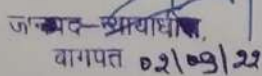 जनपद-न्यायाधीश,
बागपत 02/09/22